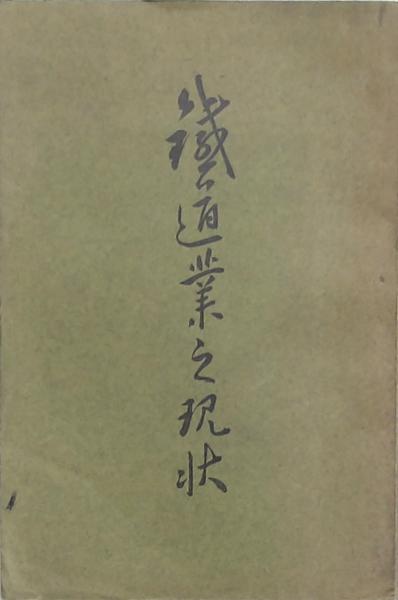 鐵道業之現状